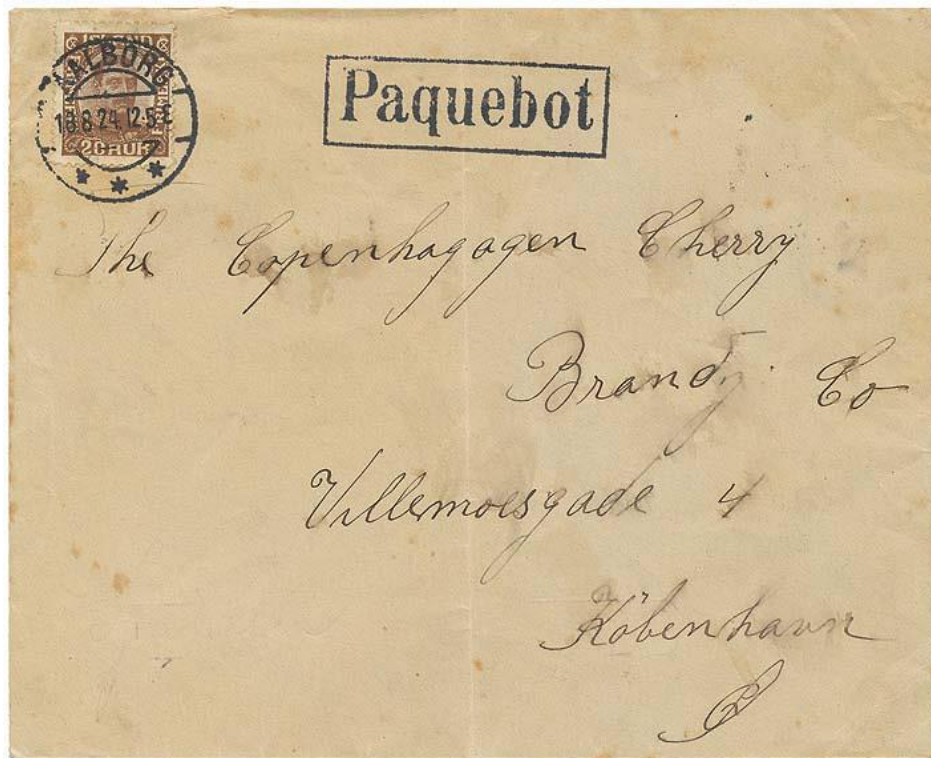 ISLAND
AALBORG
18.8.24.12-5 E
20 AUR
Paquebot
The Copenhagagen Cherry
Brandy Co
Villemoesgade 4
København